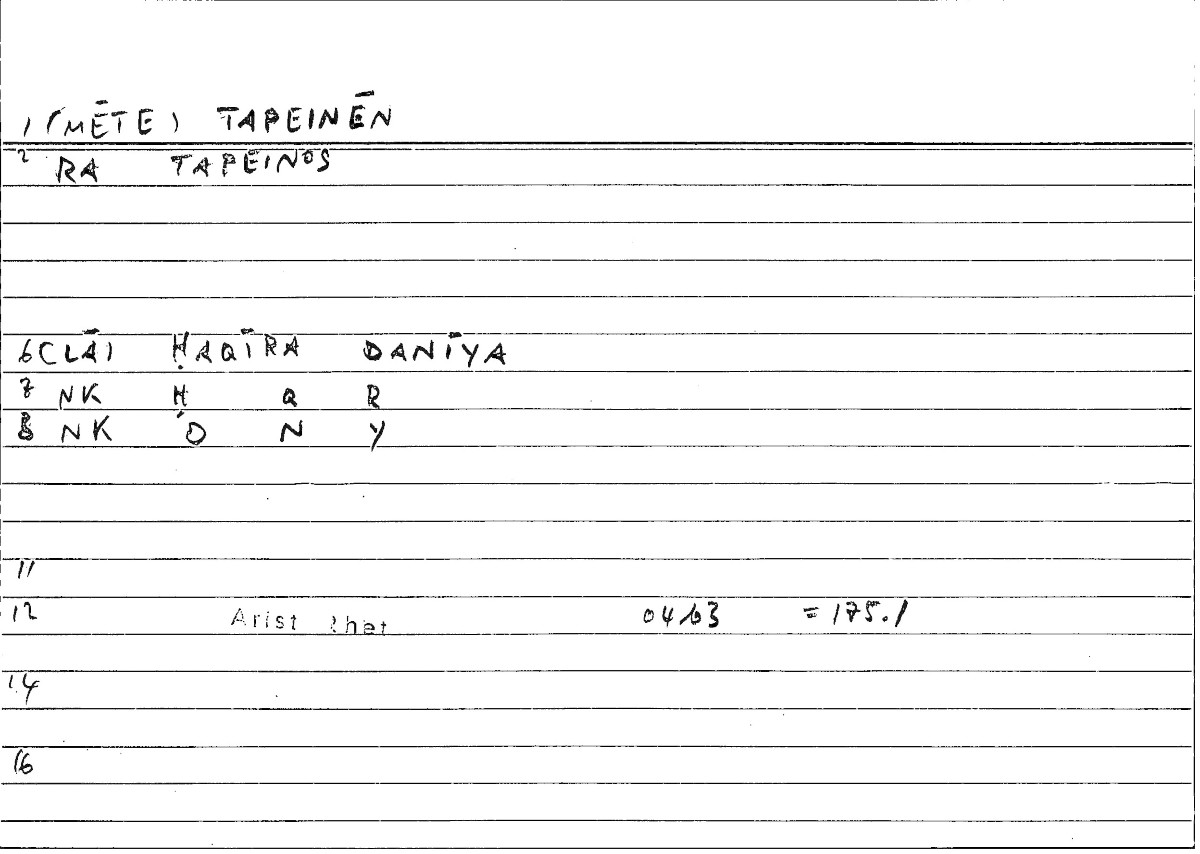 1 (MĒTE) TAPEINĒN
2 RA TAPEINOS
6 (LĀ) ḤAQĪRA DANĪYA
7 NK Ḥ Q R
8 NK D N Y
11
12 Arist Rhet 04b3 =175.1
14
16